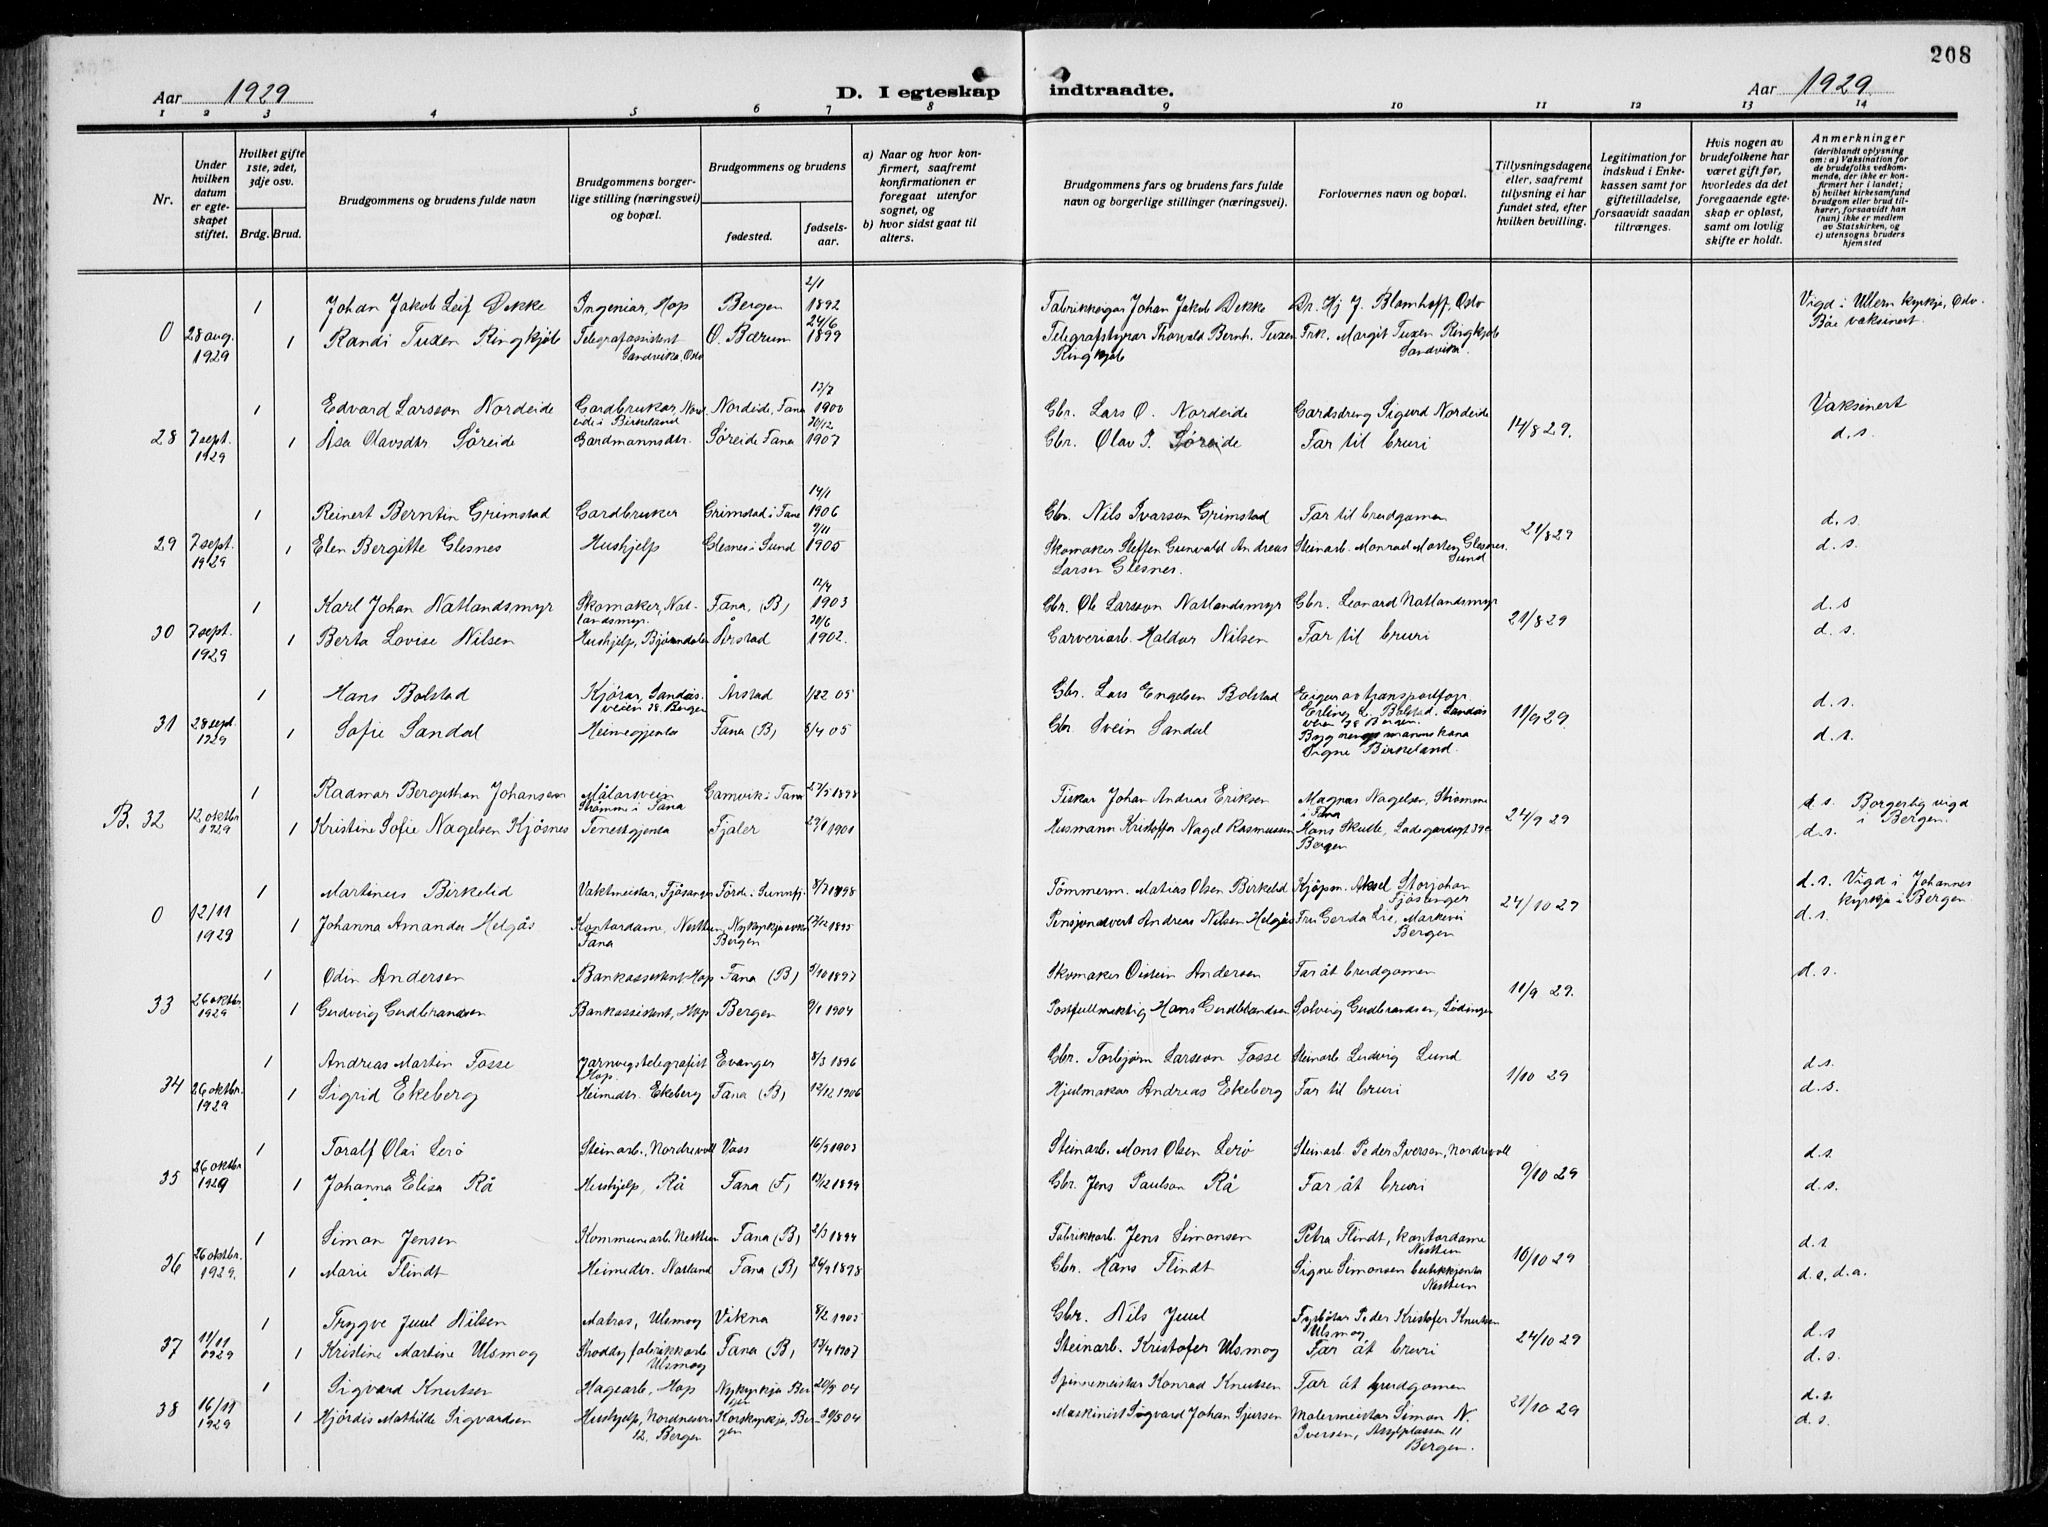 208
Aar 1929
D. I egteskap indtraadte.
Aar 1929
1 2 3 4 5 6 7 8 9 10 11 12 13 14
Nr.
Under hvilken datum er egteskapet stiftet.
Hvilket gifte 1ste, 2det, 3dje osv.
Brdg. Brud.
Brudgommens og brudens fulde navn
Brudgommens borgerlige stilling (næringsvei) og bopæl.
Brudgommens og brudens
fødested.
fødselsaar.
a) Naar og hvor konfirmert, saafremt konfirmationen er foregaat utenfor sognet, og
b) hvor sidst gaat til alters.
Brudgommens fars og brudens fars fulde navn og borgerlige stillinger (næringsvei).
Forlovernes navn og bopæl.
Tillysningsdagene eller, saafremt tillysning ei har fundet sted, efter hvilken bevilling.
Legitimation for indskud i Enkekassen samt for giftetilladelse, forsaavidt saadan tiltrænges.
Hvis nogen av brudefolkene har været gift før, hvorledes da det foregaaende egteskap er opløst, samt om lovlig skifte er holdt.
Anmerkninger (deriblandt oplysning om: a) Vaksination for de brudefolks vedkommende, der ikke er konfirmert her i landet; b) hvilket kirkesamfund brudgom eller brud tilhører, forsaavidt han (hun) ikke er medlem av Statskirken, og c) utensogns bruders hjemsted
1 Johan Jakob Leif Dekke Ingeniør, Hop Bergen 2/1 1892 Fabrikkeigar Johan Jakob Dekke Dr. Hj J. Blomhoff, Oslo Vigd i Ullern kyrkje, Oslo.
0 28 aug. 1929 1 Randi Tuxen Ringkjøb Telegrafassistent Sandvika, Oslo Ø. Bærum 24/6 1899 Telegrafstyrar Thorvald Bernh. Tuxen Ringkjøb Frk. Margit Tuxen Ringkjøb Sandvika. Båe vaksinert.
1 Edvard Larsson Nordeide Gardbrukar, Nordeide i Birkeland Nordeide, Fana 13/7 1900 Gbr. Lars O. Nordeide Gardsdreng Sigurd Nordeide Vaksinert
28 7 sept. 1929 1 Åsa Olavsdtr Søreide Gardmannsdtr. Søreide Fana 20/12 1907 Gbr. Olav J. Søreide Far til bruri 14/8 29. d. s.
1 Reinert Berntin Grimstad Gardbruker Grimstad i Fana 14/1 1906 Gbr. Nils Ivarson Grimstad Far til brudgomen d. s.
29 7 sept. 1929 1 Elen Bergitte Glesnes Hushjelp Glesnes i Sund 9/11 1905 Skomaker Steffen Gunvald Andreas Larsen Glesnes. Steinarb. Monrad Morten Glesnes. Sund 21/8 29 d. s.
1 Karl Johan Natlandsmyr Skomaker, Natlandsmyr. Fana, (B) 12/4 1903 Gbr. Ole Larsson Natlandsmyr Gbr. Leonard Natlandsmyr d. s
30 7 sept. 1929 1 Berta Lovise Nilsen Hushjelp, Bjørndalen Årstad 20/6 1902. Garveriarb. Haldor Nilsen Far til bruri 21/8 29 d. s.
1 Hans Bolstad Kjørar, Landåsveien 38. Bergen Årstad 1/22 05 Gbr. Lars Engelsen Bolstad Eigar av transportforr. Erling L. Bolstad. Landåsveien 38 Bergen. d. s.
31 28 sept. 1929 1 Sofie Sandal Heimegjenta Fana (B) 8/4 05 Gbr Svein Sandal Bygningsmannskona Signe Birkeland. 11/9 29. d. s.
1 Radmar Bergithon Johansen Målarsvein Strømme i Fana Gamvik i Fana 27/5 1898 Fiskar Johan Andreas Eriksen Magnus Nagelsen, Strømme i Fana d. s. Borgerlig vigd i Bergen.
B. 32 12 oktbr 1929 1 Kristine Sofie Nagelsen Kjøsnes Tenestgjenta Fjaler 29/1 1901 Husmann Kristoffer Nagel Rasmussen Hans Skutle, Ladegårdsgt 39c Bergen 24/9 29 d. s.
1 Martinus Birkelid Vaktmeister, Fjøsanger Førde i Sunnfj. 8/7 1898 Tømmerm. Matias Olsen Birkelid Kjøpm. Aksel Storjohan Fjøsanger d. s. Vigd i Johannes kyrkje i Bergen.
0 12/11 1929 1 Johanna Amanda Helgås Kontordame, Nesttun Fana Nykyrkjesokn Bergen 12/12 1895 Pensjonsvert Andreas Nilsen Helgås Fru Gerda Lie, Markevei Bergen 24/10 29 d. s.
1 Odin Andersen Bankassistent Hop Fana (B) 5/10 1897 Skomaker Oistein Andersen Far åt brudgomen d. s.
33 26 oktbr 1929 1 Gudveig Gudbrandsen Bankassistent, Hop Bergen 9/1 1904 Postfullmektig Hans Gudbrandsen Solveig Gudbrandsen, Lødingen 11/9 29.
1 Andreas Martin Fosse Jarnvegstelegrafist Hop. Evanger 8/3 1896 Gbr. Torbjørn Larsson Fosse Steinarb. Ludvig Lund d. s.
34 26 oktbr. 1929 1 Sigrid Ekeberg Heimedtr. Ekeberg Fana (B) 12/12 1906 Hjulmakar Andreas Ekeberg Far til bruri 1/10 29 d. s.
1 Toralf Olai Lerø Steinarb., Nordrevoll Voss 16/5 1903 Steinarb. Mons Olsen Lerø Steinarb Peder Iversen, Nordrevoll d. s.
35 26 oktbr 1929 1 Johanna Elisa Rå Hushjelp, Rå Fana (F) 13/12 1899 Gbr. Jens Paulson Rå Far åt bruri 9/10 29 d. s.
1 Simon Jensen Kommunearb Nesttun Fana (B) 2/3 1894 Fabrikkarb. Jens Simonsen Petra Flindt, kontordame Nesttun d. s
36 26 oktbr. 1929. 1 Marie Flindt Heimedtr. Natland Fana (B) 26/9 1898 Gbr. Hans Flindt Signe Simonsen butikkjenta Nesttun 16/10 29 d. s, d. a.
1 Trygve Juul Nilsen Matros, Ulsmog Vikna 8/2 1905 Gbr. Nils Juul Fyrbøtar Peder Kristofer Knutsen Ulsmog d. s
37 11/11 1929 1 Kristine Martine Ulsmog Shoddyfabrikkarb Ulsmog Fana (B) 13/4 1907 Steinarb. Kristofer Ulsmog Far åt bruri 24/10 29 d. s.
1 Sigvard Knutsen Hagearb, Hop Nykyrkja Bergen 20/9 04 Spinnemeister Konrad Knutsen Far åt brudgomen d. s.
38 16/11 1929 1 Hjørdis Mathilde Sigvardsen Hushjelp, Nordnesvei 12. Bergen Korskyrkja, Bergen 30/5 04 Maskinist Sigvard Johan Sjursen Malermeister Simon N. Iversen, Asylplassen 11 Bergen. 21/10 29 d. s.